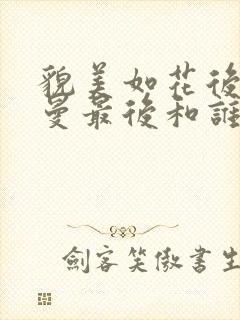 貌美如花後
曼最後和誰
劍客笑傲書生